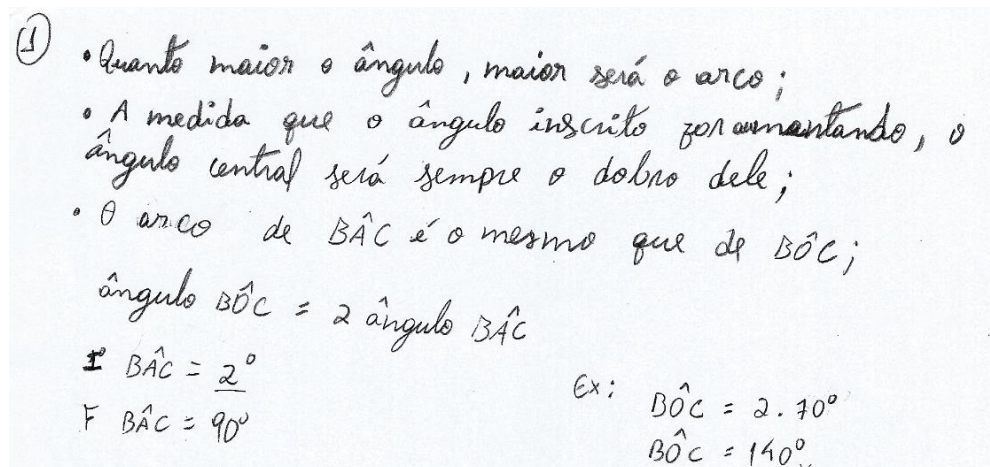 1
• Quanto maior o ângulo, maior será o arco;
• A medida que o ângulo inscrito for aumentando, o
ângulo central será sempre o dobro dele;
• O arco de BÂC é o mesmo que de BÔC;
ângulo BÔC = 2 ângulo BÂC
I BÂC = 2°
F BÂC = 90°
Ex: BÔC = 2.70°
BÔC = 140°